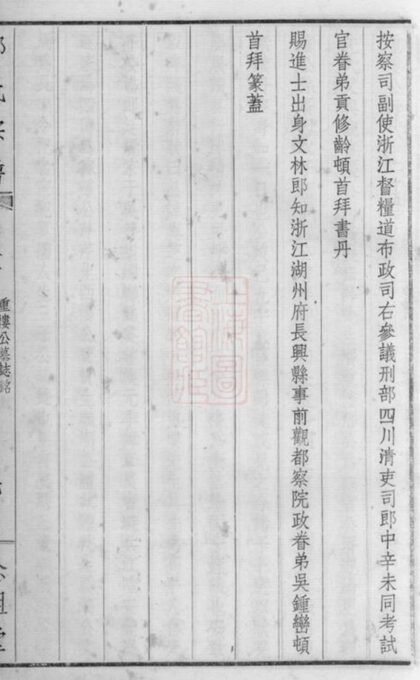 按察司副使浙江督糧道布政司右參議刑部四川清吏司郎中辛未同考試
官眷弟貢修齡頓首拜書丹
賜進士出身文林郎知浙江湖州府長興縣事前觀都察院政眷弟吳鍾巒頓
首拜篆蓋
重樓公墓誌銘